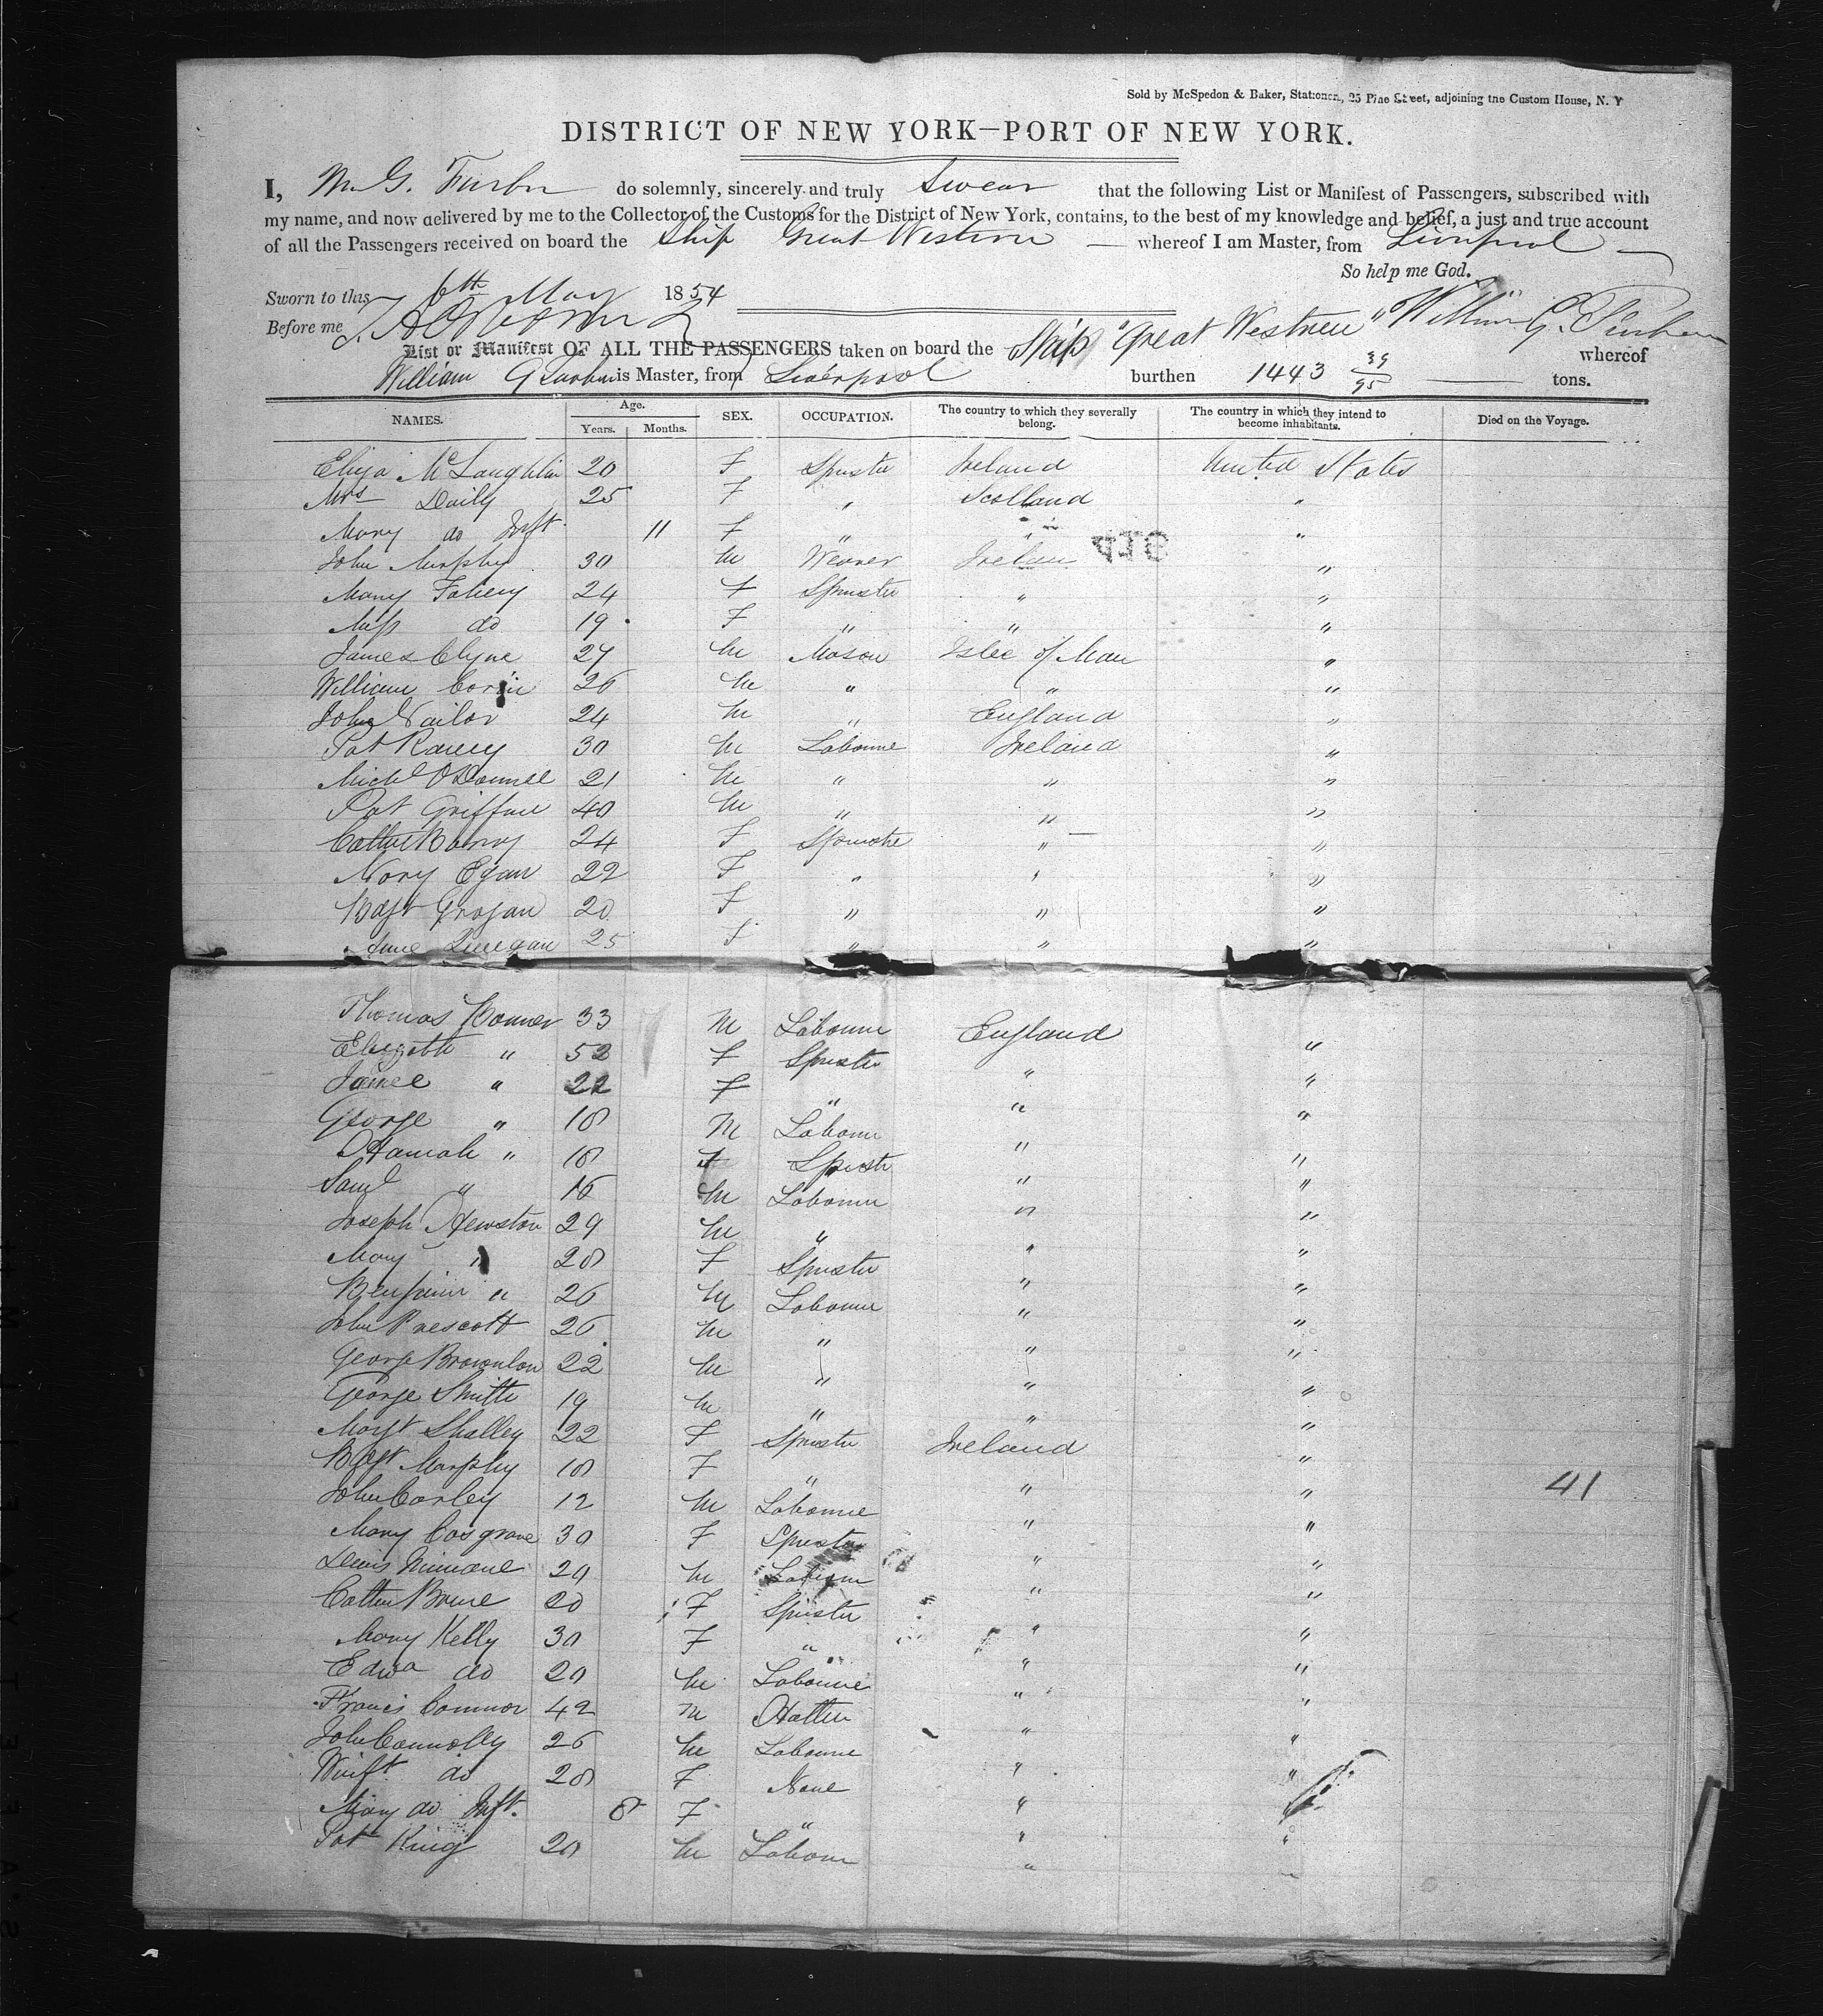 Sold by McSpedon & Baker, Stationers, 25 Pine Street, adjoining the Custom House, N. Y
DISTRICT OF NEW YORK—PORT OF NEW YORK.
I, Wm G. Furber do solemnly, sincerely and truly Swear that the following List or Manifest of Passengers, subscribed with
my name, and now delivered by me to the Collector of the Customs for the District of New York, contains, to the best of my knowledge and belief, a just and true account
of all the Passengers received on board the Ship Great Western — whereof I am Master, from Liverpool —
So help me God.
Sworn to this 6th May 1854
Before me William G. Furber
List or Manifest OF ALL THE PASSENGERS taken on board the Ship "Great Western" whereof
William G Furber is Master, from Liverpool burthen 1443 39/95 tons.
NAMES. Age. Years. Months. SEX. OCCUPATION. The country to which they severally belong. The country in which they intend to become inhabitants. Died on the Voyage.
Eliza McLaughlin 20 F Spinster Ireland United States
Mrs Daily 25 F " Scotland "
Mary do Inft 11 F " " "
John Murphy 30 M Weaver Ireland "
Mary Fahey 24 F Spinster " "
Miss do 19 F " " "
James Clyne 27 M Mason Isle of Man "
William 26 M " " "
John Nailor 24 M " England "
Pat 30 M Labourer Ireland "
Michl O'Donnell 21 M " " "
Pat Griffin 40 M " " "
Cathe Barry 24 F Spinster " "
Mary Egan 22 F " " "
Bdgt Grogan 20 F " " "
Anne 25 F " " "
Thomas 33 M Labourer England "
Elizabeth " 52 F Spinster " "
" 22 F " " "
George " 18 M Labourer " "
Hannah " 18 F Spinster " "
Saml " 16 M Labourer " "
Joseph Hewston 29 M " " "
Mary " 28 F Spinster " "
Benjamin " 26 M Labourer " "
John Prescott 26 M " " "
George Brownlow 22 M " " "
George Smith 19 M " " "
Margt Shalley 22 F Spinster Ireland "
Bdgt Murphy 18 F " " "
John Corley 12 M Labourer " "
Mary Cosgrove 30 F Spinster " "
29 M Labourer " "
Cathe 20 F Spinster " "
Mary Kelly 30 F " " "
Edwd do 20 M Labourer " "
Francis Connor 42 M Hatter " "
John Connolly 26 M Labourer " "
Winift do 28 F None " "
Mary do Inft. 8 F " " "
Pat King 20 M Labourer " "
41